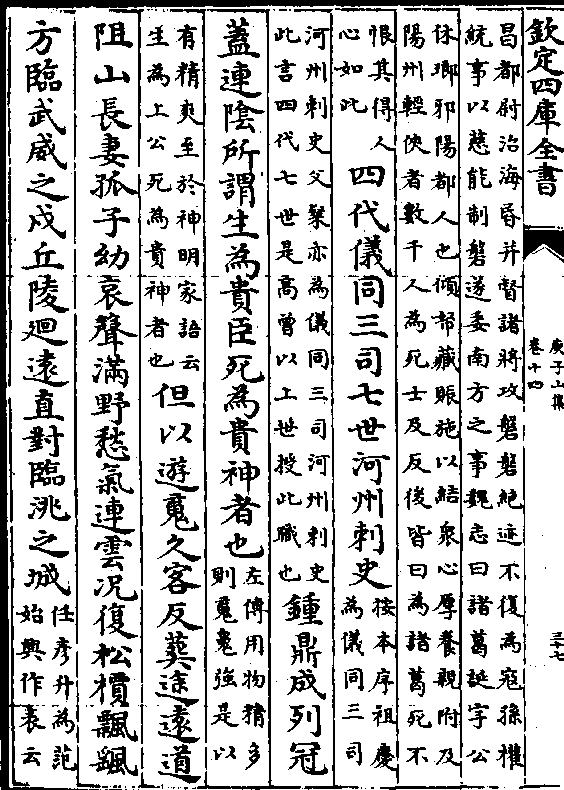 欽定四庫全書
庾子山集
卷十四
三十七
昌都尉治海昏并督諸將攻磐磐絶迹不復為寇孫權
統事以慈能制磐遂委南方之事魏志曰諸葛誕字公
休瑯邪陽都人也傾帑藏賑施以結衆心厚養親附及
陽州輕俠者數千人為死士及反後皆曰為諸葛死不
恨其得人
心如此
四代儀同三司七世河州刺史
按本序祖慶
為儀同三司
河州刺史父粲亦為儀同三司河州刺史
此言四代七世是高曾以上世授此職也
鍾鼎成列冠
蓋連陰所謂生為貴臣死為貴神者也
左傳用物精多
則䰟魄強是以
有精爽至於神明家語云
生為上公死為貴神者也
但以遊䰟久客反葬途遠道
阻山長妻孤子幼哀聲滿野愁氣連雲况復松檟飄颻
方臨武威之戍丘陵迴遠直對臨洮之城
任彦升為范
始興作表云